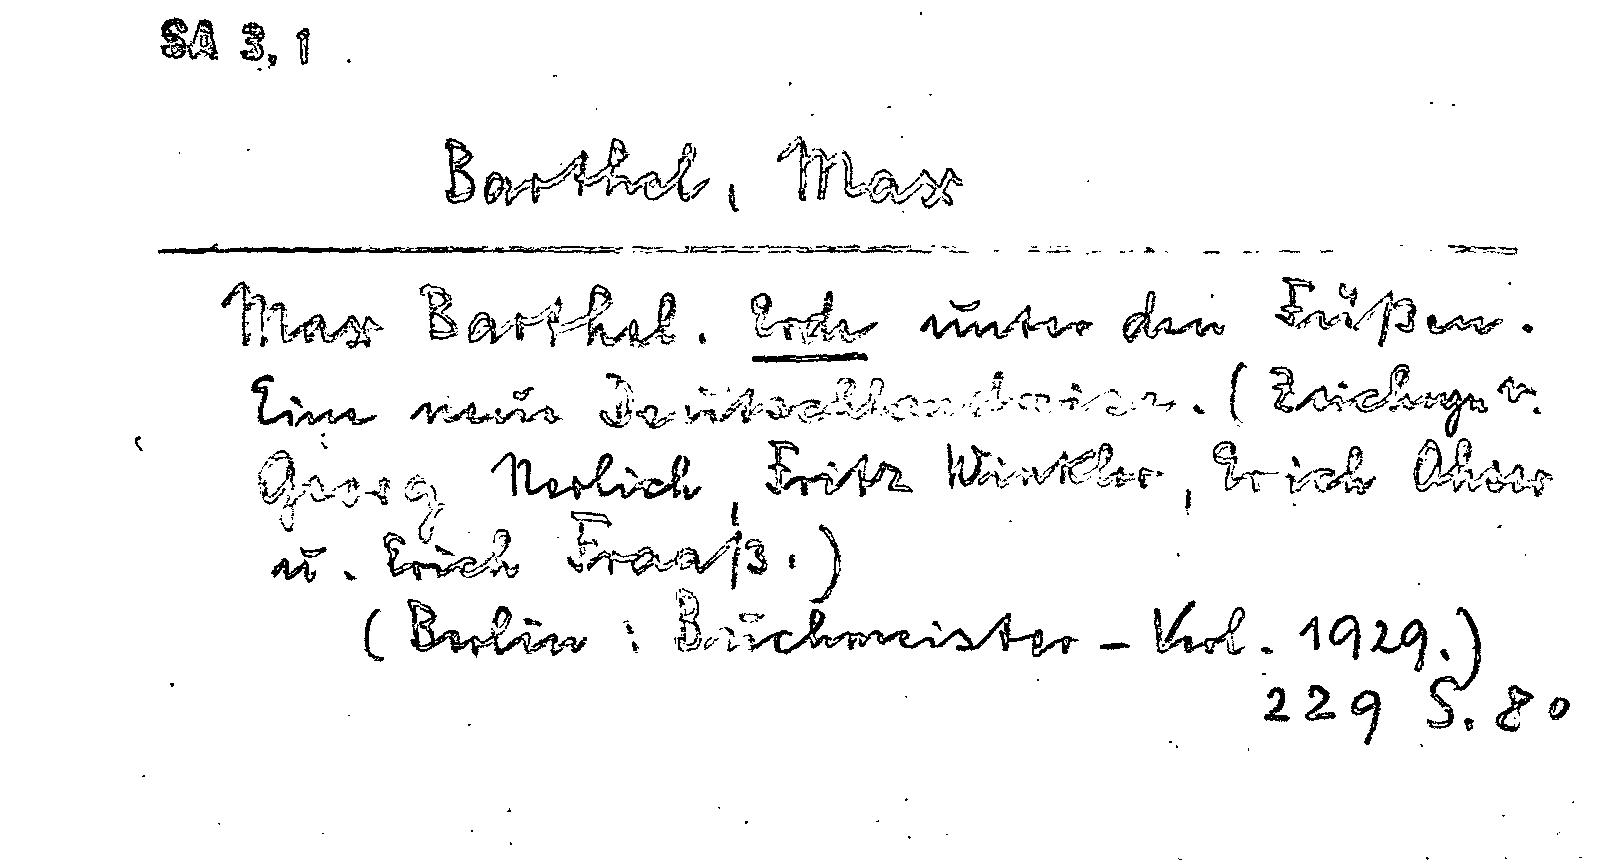 SA 3,1
Barthel, Max
Max Barthel. Erde unter den Füßen.
Eine neue Deutschlandreise. (Zeichngn v.
Georg Nerlich, Fritz Winkler, Erich Ohser
u. Erich Fraaß.)
(Berlin: Büchmeister-Verl. 1929.)
229 S. 8o